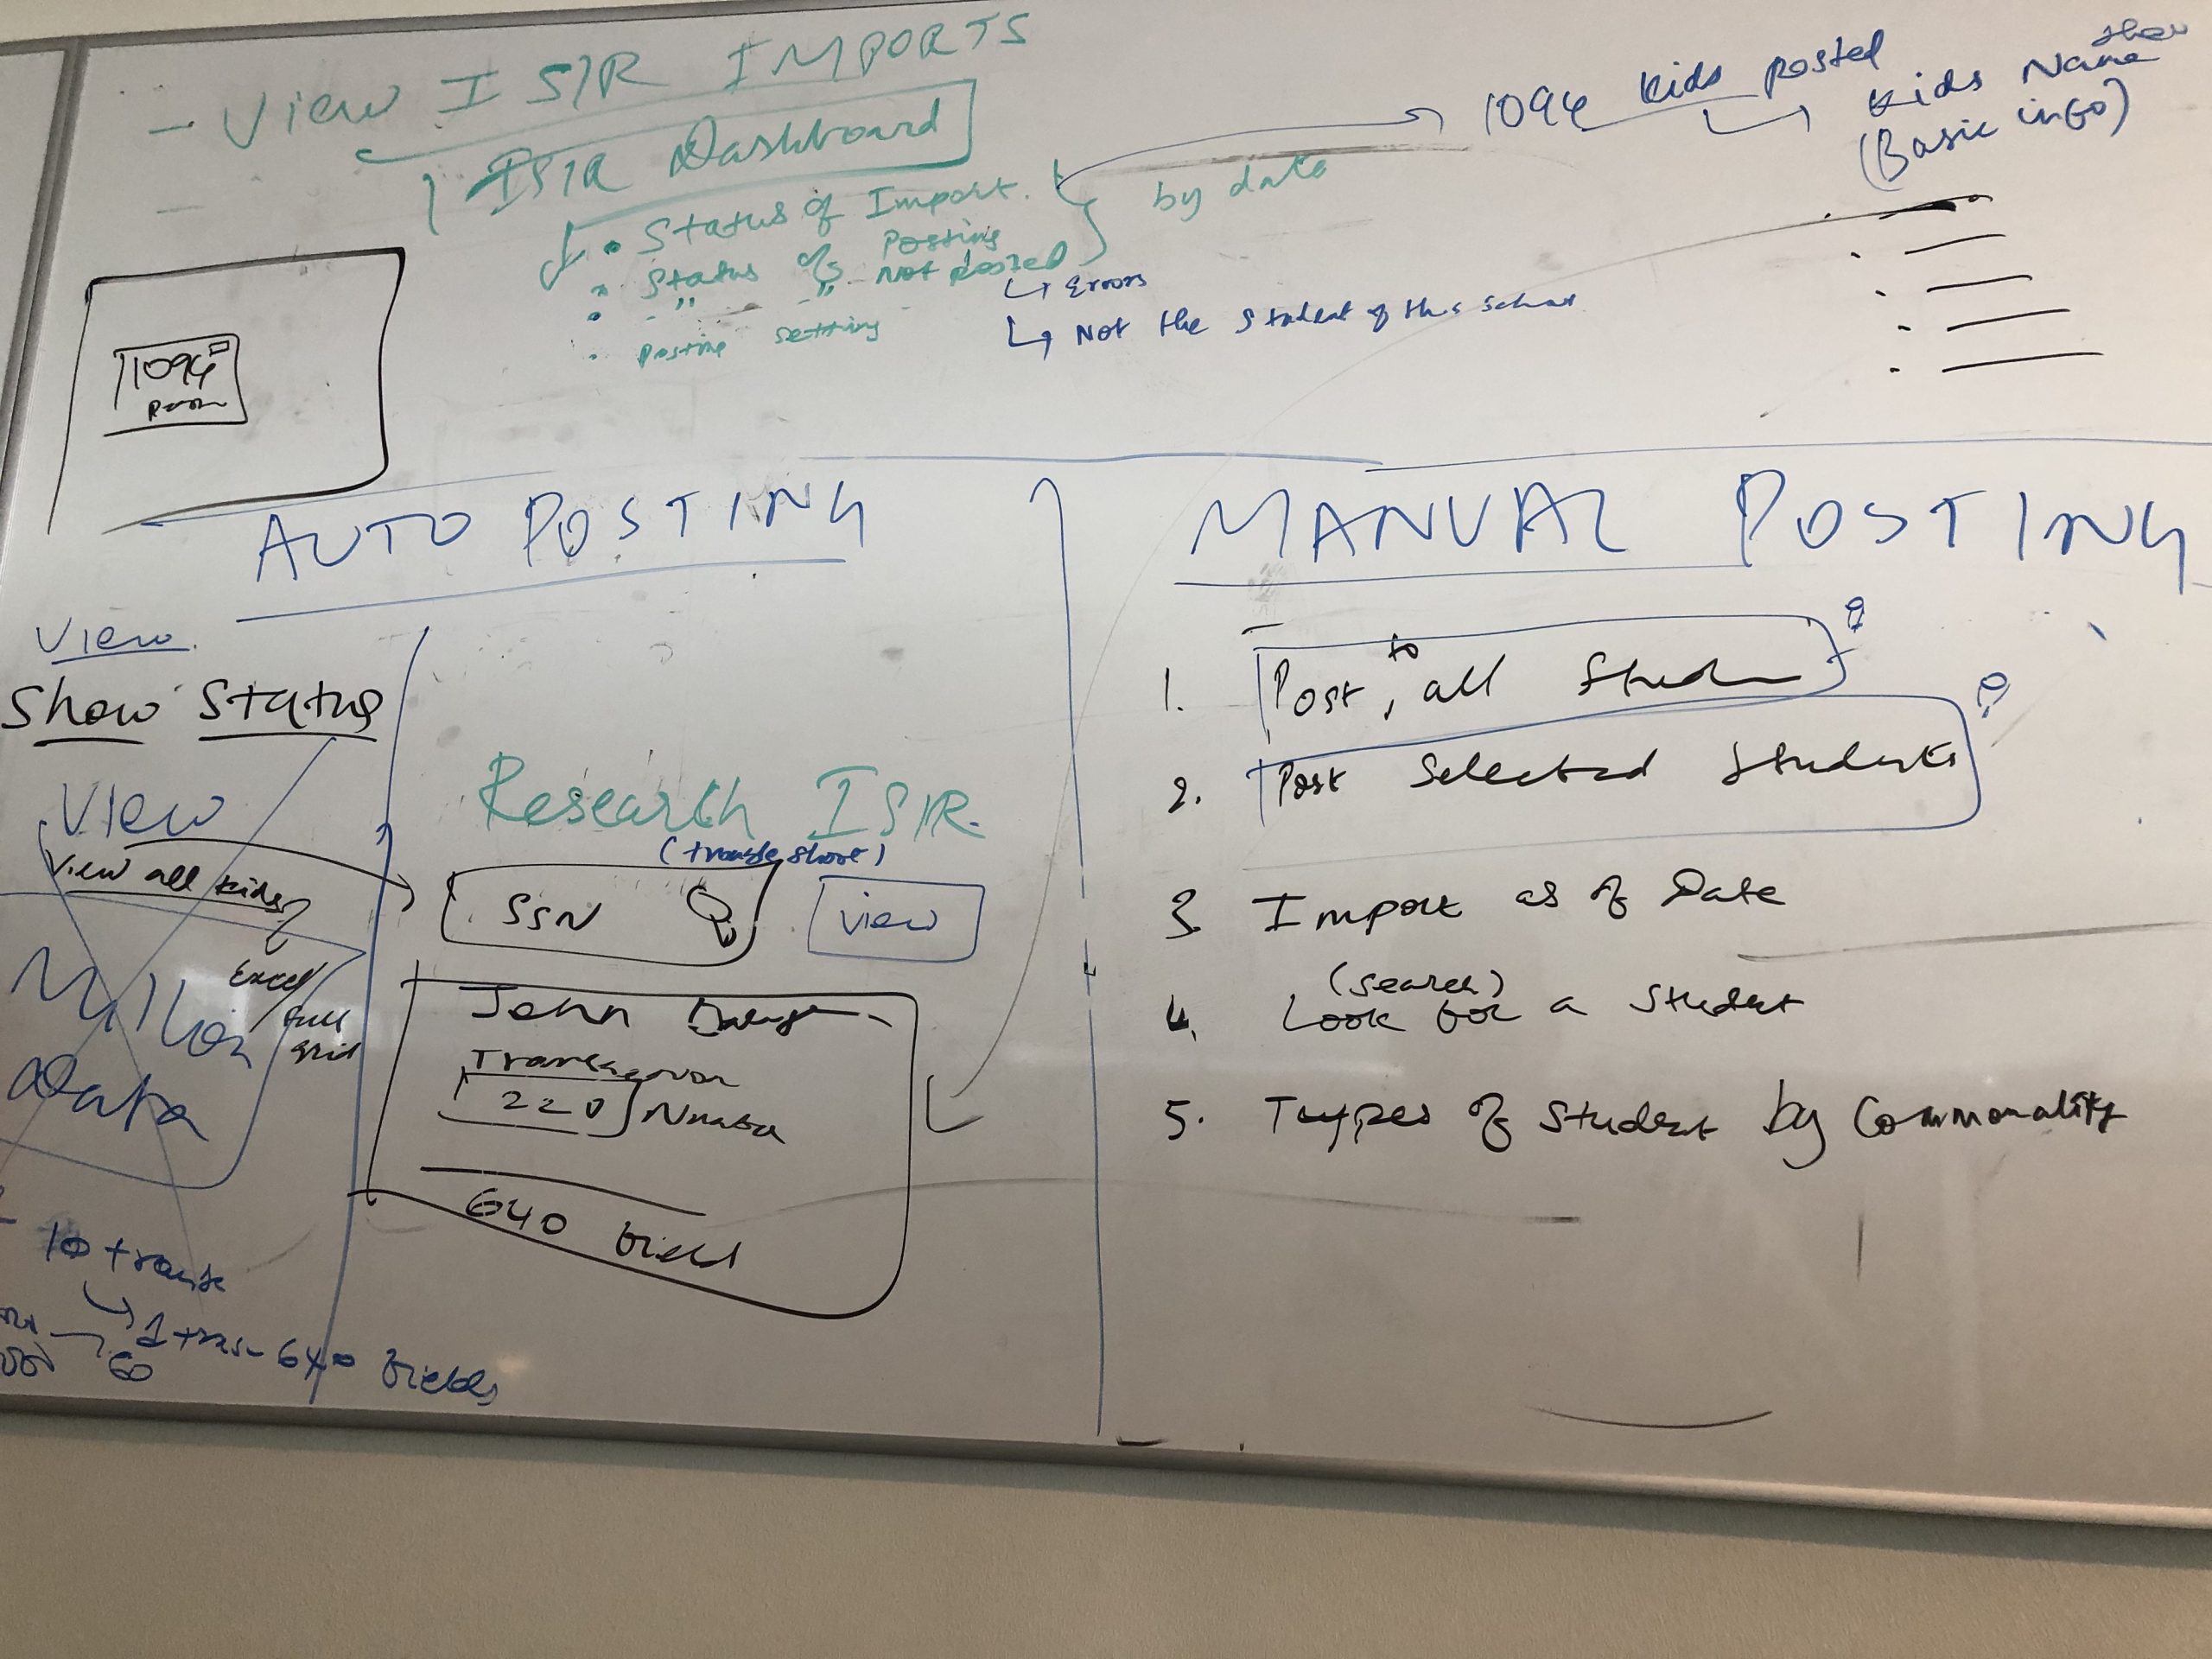 - VIEW ISIR IMPORTS
ISIR Dashboard
• Status of Import.
• Status of Posting
• " " Not posted
• posting setting
by date
↳ Errors
↳ Not the student of this school
1094 kids posted
Kids Name
(Basic info)
1094
AUTO POSTING
MANUAL POSTING
View
Show Status
View
View all kids
Excel/
full
grid
Million
Data
Research ISIR
(troubleshoot)
SSN
View
John
Transaction
220 Number
640 field
10 transc
↳ 1 trns - 640 fields
60
1. Post to all Studen
2. Post Selected Students
3. Import as of Date
(search)
4. Look for a Student
5. Types of Student by Commonality